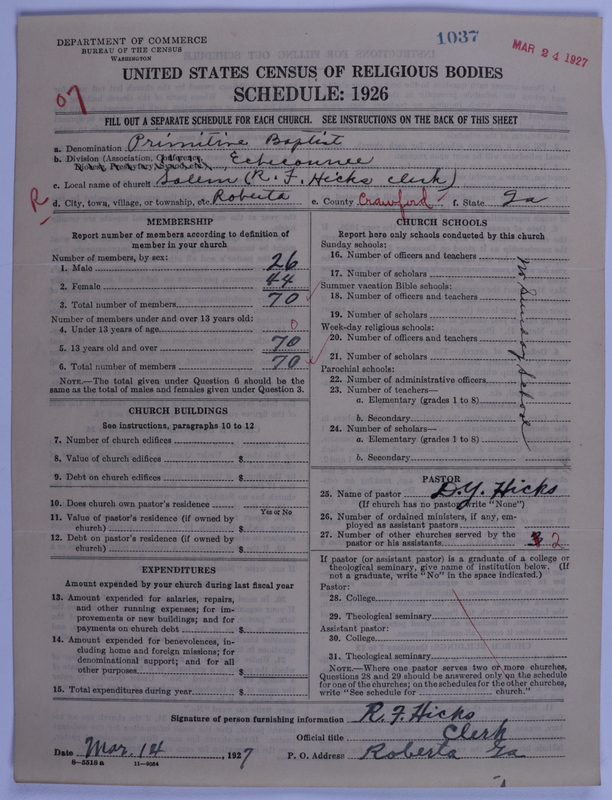 DEPARTMENT OF COMMERCE
BUREAU OF THE CENSUS
WASHINGTON
1037
MAR 24 1927
UNITED STATES CENSUS OF RELIGIOUS BODIES
SCHEDULE: 1926
07
FILL OUT A SEPARATE SCHEDULE FOR EACH CHURCH. SEE INSTRUCTIONS ON THE BACK OF THIS SHEET
a. Denomination Primitive Baptist
b. Division (Association, Conference, Echeconnee
Diocese, Presbytery, Synod, etc.)
c. Local name of church Salem (R. F. Hicks Clerk)
R
d. City, town, village, or township, etc. Roberta e. County Crawford f. State Ga
MEMBERSHIP
Report number of members according to definition of
member in your church
Number of members, by sex:
1. Male 26
2. Female 44
3. Total number of members 70
Number of members under and over 13 years old:
4. Under 13 years of age 0
5. 13 years old and over 70
6. Total number of members 70
NOTE.—The total given under Question 6 should be
same as the total of males and females given under Question 3.
CHURCH BUILDINGS
See instructions, paragraphs 10 to 12
7. Number of church edifices
8. Value of church edifices $
9. Debt on church edifices $
10. Does church own pastor's residence
Yes or No
11. Value of pastor's residence (if owned by
church) $
12. Debt on pastor's residence (if owned by
church) $
EXPENDITURES
Amount expended by your church during last fiscal year
13. Amount expended for salaries, repairs,
and other running expenses; for im-
provements or new buildings; and for
payments on church debt $
14. Amount expended for benevolences, in-
cluding home and foreign missions; for
denominational support; and for all
other purposes $
15. Total expenditures during year $
CHURCH SCHOOLS
Report here only schools conducted by this church
Sunday schools:
16. Number of officers and teachers
17. Number of scholars
Summer vacation Bible schools:
18. Number of officers and teachers
19. Number of scholars
Week-day religious schools:
20. Number of officers and teachers
21. Number of scholars
Parochial schools:
22. Number of administrative officers
23. Number of teachers—
a. Elementary (grades 1 to 8)
b. Secondary
24. Number of scholars—
a. Elementary (grades 1 to 8)
b. Secondary
No Sunday School
PASTOR
25. Name of pastor D. Y. Hicks
(If church has no pastor, write "None")
26. Number of ordained ministers, if any, em-
ployed as assistant pastors
27. Number of other churches served by the
pastor or his assistants 2
If pastor (or assistant pastor) is a graduate of a college or
theological seminary, give name of institution below. (If
not a graduate, write "No" in the space indicated.)
Pastor:
28. College
29. Theological seminary
Assistant pastor:
30. College
31. Theological seminary
NOTE.—Where one pastor serves two or more churches,
Questions 28 and 29 should be answered only on the schedule
for one of the churches; on the schedules for the other churches,
write "See schedule for church."
Signature of person furnishing information R. F. Hicks
Official title Clerk
Date Mar. 14, 1927 P. O. Address Roberta Ga
8-5518 a 11-9054